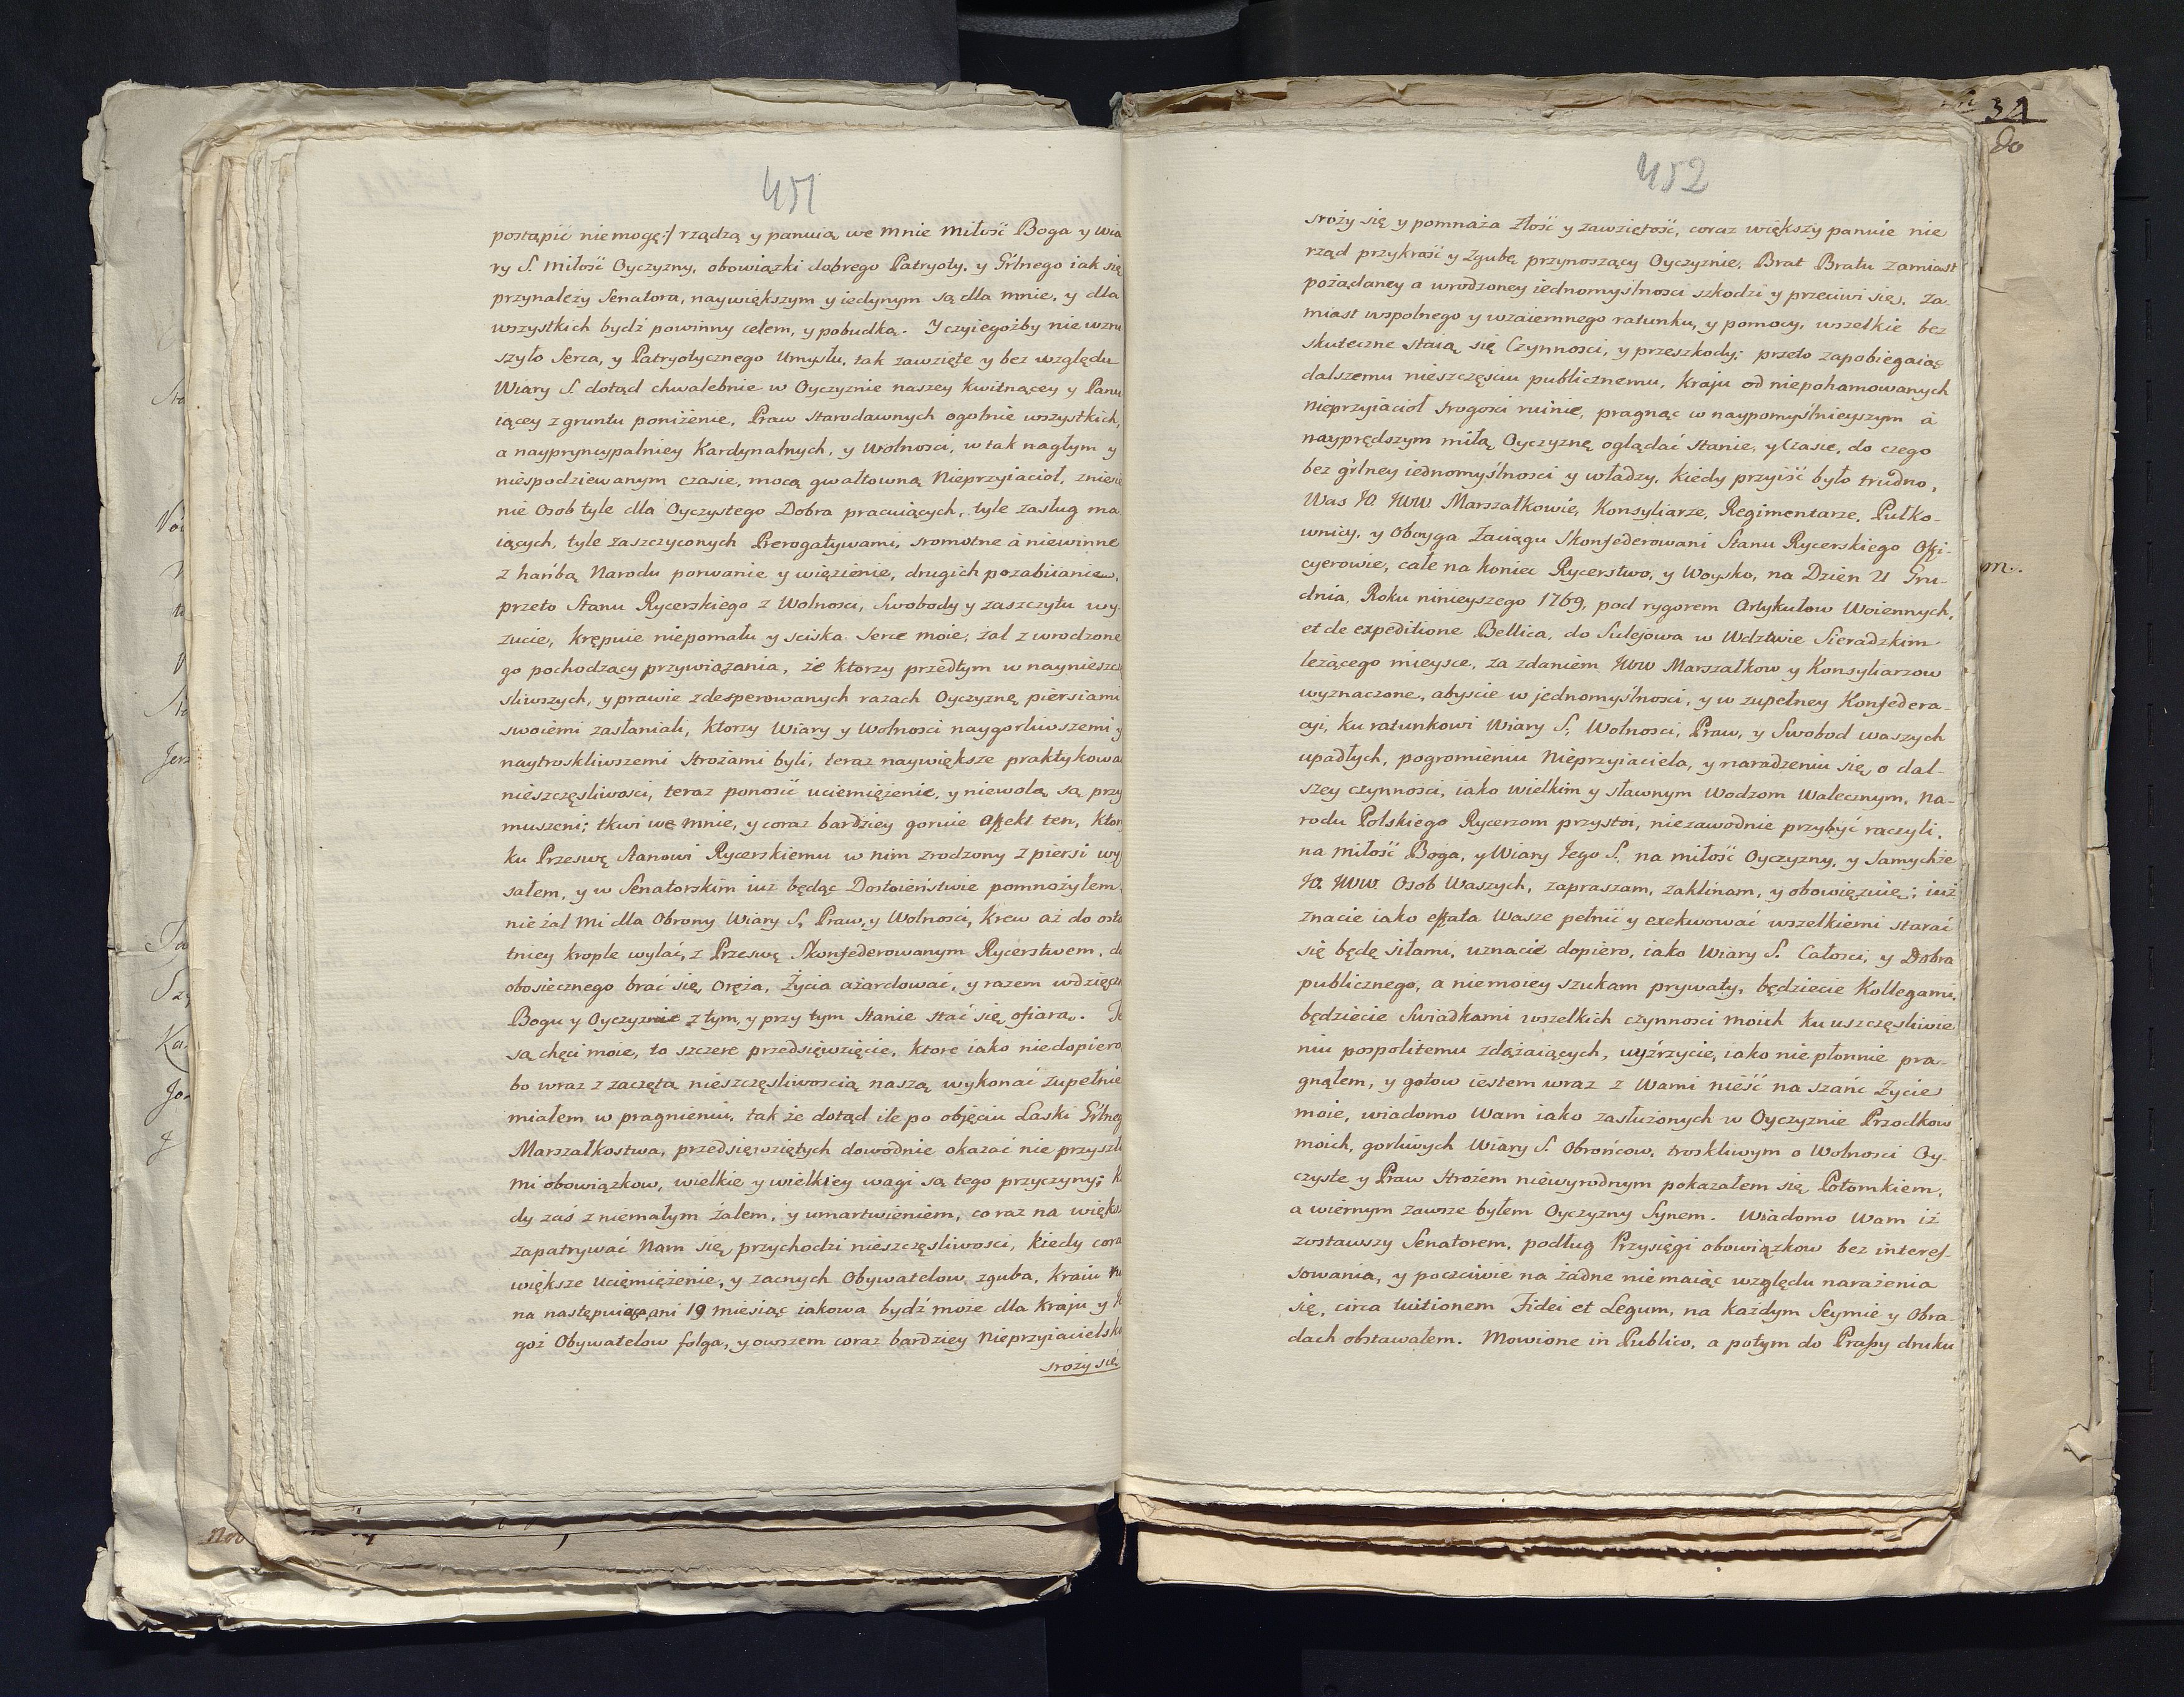 451
postąpić niemogę:/ rządzą y panuią we mnie Miłość Boga y Wia
ry S. Miłość Oyczyzny, obowiązki dobrego Patryoty, y Grlnego iak się
przynależy Senatora, naywiększym y iedynym są dla mnie, y dla
wszystkich bydź powinny celem, y pobudką. Y czyiegożby nie wzru
szyło Serca, y Patryotycznego Umysłu, tak zawzięte y bez względu
Wiary S. dotąd chwalebnie w Oyczyznie naszey kwitnącey y Panu
iącey z gruntu poniżenie, Praw starodawnych ogolnie wszystkich,
a naypryncypalniey Kardynalnych, y Wolnosci, w tak nagłym y
niespodziewanym czasie, mocą gwałtowną Nieprzyiacioł, zniesie
nie Osob tyle dla Oyczystego Dobra pracuiących, tyle zasług ma
iących, tyle zaszczyconych Prerogatywami, sromotne à niewinne
z hańbą Narodu porwanie y więzienie, drugich pozabiianie,
przeto Stanu Rycerskiego z Wolnosci, Swobody y zaszczytu wy
zucie, krępuie niepomału y sciska Serce moie, żal z wrodzone
go pochodzący przywiązania, że ktorzy przedtym w naynieszczę
sliwszych, y prawie zdesperowanych razach Oyczyznę piersiami
swoiemi zasłaniali, ktorzy Wiary y Wolnosci naygorliwszemi y
naytroskliwszemi Strożami byli, teraz naywiększe praktykować
nieszczęsliwosci, teraz ponosić uciemiężenie, y niewolą są przy
muszeni; tkwi we mnie, y coraz bardziey goruie Affekt ten, ktory
ku Przeswę Stanowi Rycerskiemu w nim zrodzony z piersi wys
sałem, y w Senatorskim iuż będąc Dostoieństwie pomnożyłem,
nie żal mi dla Obrony Wiary S, Praw, y Wolnosci, krew aż do osta
tniey krople wylać, z Przeswę Skonfederowanym Rycerstwem, do
obosiecznego brać się oręża, Życia ażardować, y razem wdzięczną
Bogu y Oyczyznie z tym, y przy tym Stanie stać się ofiarą. Te
są chęci moie, to szczere przedsięwzięcie, ktore iako niedopiero
bo wraz z zaczętą nieszczęsliwoscią naszą wykonać zupełnie
miałem w pragnieniu, tak że dotąd ile po objęciu Laski Grlney
Marszałkostwa, przedsięwziętych dowodnie okazać nie przyszło
mi obowiązkow, wielkie y wielkiey wagi są tego przyczyny; kie
dy zaś z niemałym żalem, y umartwieniem, coraz na większe
zapatrywać Nam się przychodzi nieszczęsliwosci, kiedy coraz
większe uciemiężenie, y zacnych Obywatelow zguba, kraiu
na następuiące ani 19 miesiąc iakowa bydź może dla kraju y
goż Obywatelow folga, y owszem coraz bardziey Nieprzyiacielska
sroży się
452
sroży się y pomnaża złość y zawziętość, coraz większy panuie nie
rząd przykrość y zgubę przynoszący Oyczyznie. Brat Bratu zamiast
pożądaney a wrodzoney iednomyślnosci szkodzi y przeciwi się, za
miast wspolnego y wzaiemnego ratunku, y pomocy, wszelkie bez
skuteczne staią się Czynnosci, y przeszkody; przeto zapobiegaiąc
dalszemu nieszczęsciu publicznemu, kraju od niepohamowanych
Nieprzyiacioł srogosci ruinie, pragnąc w naypomyślnieyszym à
nayprędszym miłą Oyczyznę oglądać Stanie, y Czasie, do czego
bez grlney iednomyślnosci y władzy, kiedy przyiść było trudno,
Was JO. JWW. Marszałkowie, Konsyliarze, Regimentarze, Pułko-
wnicy, y Oboyga Zaciągu Skonfederowani Stanu Rycerskiego Offi-
cyerowie, całe na koniec Rycerstwo, y Woysko, na Dzien 21 Gru-
dnia, Roku ninieyszego 1769, pod rygorem Artykułow Woiennych,
et de expeditione Bellica, do Sulejowa w Wdztwie Sieradzkim
leżącego mieysce, za zdaniem JWW Marszałkow y Konsyliarzow
wyznaczone, abyscie w jednomyślnosci, y w zupełney Konfedera-
cyi, ku ratunkowi Wiary S, Wolnosci, Praw, y Swobod waszych
upadłych, pogromieniu Nieprzyiaciela, y naradzeniu się o dal-
szey czynnosci, iako wielkim y sławnym Wodzom Walecznym, Na-
rodu Polskiego Rycerzom przystoi, niezawodnie przybyć raczyli,
na miłość Boga, y Wiary Jego S. na miłość Oyczyzny, y samychże
JO. JWW. Osob Waszych, zapraszam, zaklinam, y obowięzuię; iuż
znacie iako effata Wasze pełnić y exekwować wszelkiemi starać
się będę siłami, uznacie dopiero, iako Wiary S. Całosci, y Dobra
publicznego, a niemoiey szukam prywaty, będziecie Kollegami,
będziecie Swiadkami wszelkich czynnosci moich ku uszczęsliwie
niu pospolitemu zdążaiących, uyźrzycie, iako niepłonnie pra-
gnąłem, y gotow iestem wraz z Wami nieść na szańc Życie
moie, wiadomo Wam iako zasłużonych w Oyczyznie Przodkow
moich, gorliwych Wiary S. Obrońcow, troskliwym o Wolnosci Oy-
czyste y Praw Strożem niewyrodnym pokazałem się Potomkiem,
a wiernym zawsze byłem Oyczyzny Synem. Wiadomo Wam iż
zostawszy Senatorem, podług Przysięgi obowiązkow bez interes-
sowania, y poczciwie na żadne niemaiąc względu narażenia
się, circa tuitionem Fidei et Legum, na każdym Seymie y Obra-
dach obstawałem. Mowione in Publico, a potym do Prassy druku